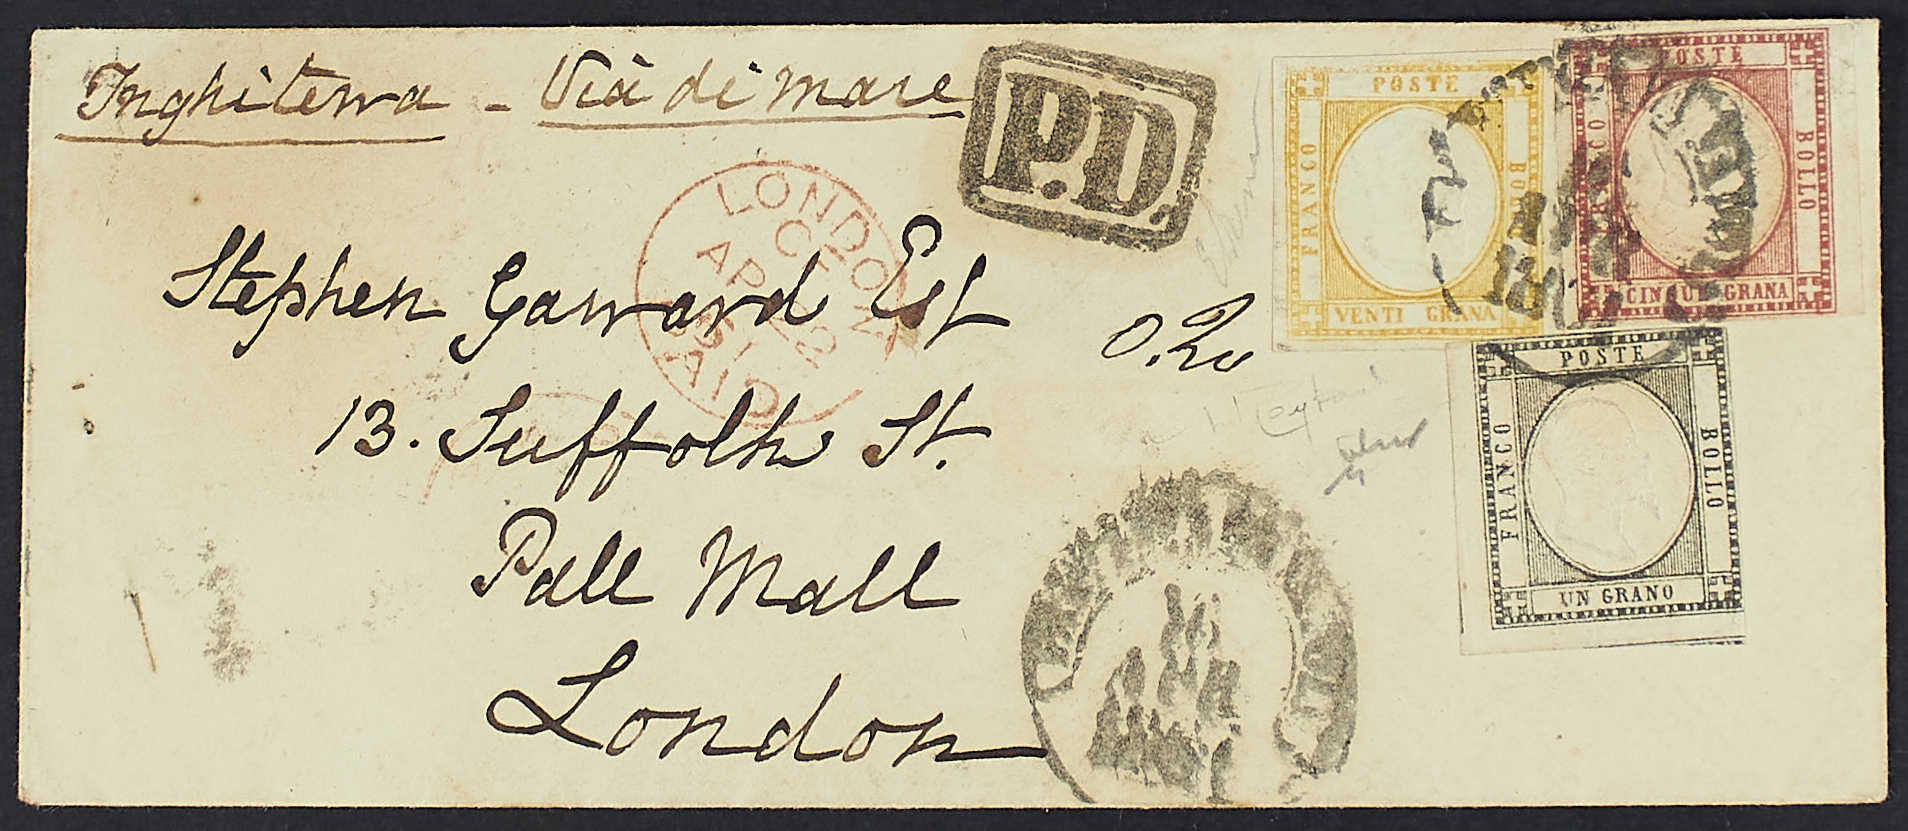 Inghiterra - Via di mare
P.D.
LONDON
AP 22
PAID
Stephen Garrard Est
13. Suffolk St.
Pall Mall
London
POSTE
FRANCO
BOLLO
VENTI GRANA
POSTE
FRANCO
BOLLO
CINQUE GRANA
POSTE
FRANCO
BOLLO
UN GRANO